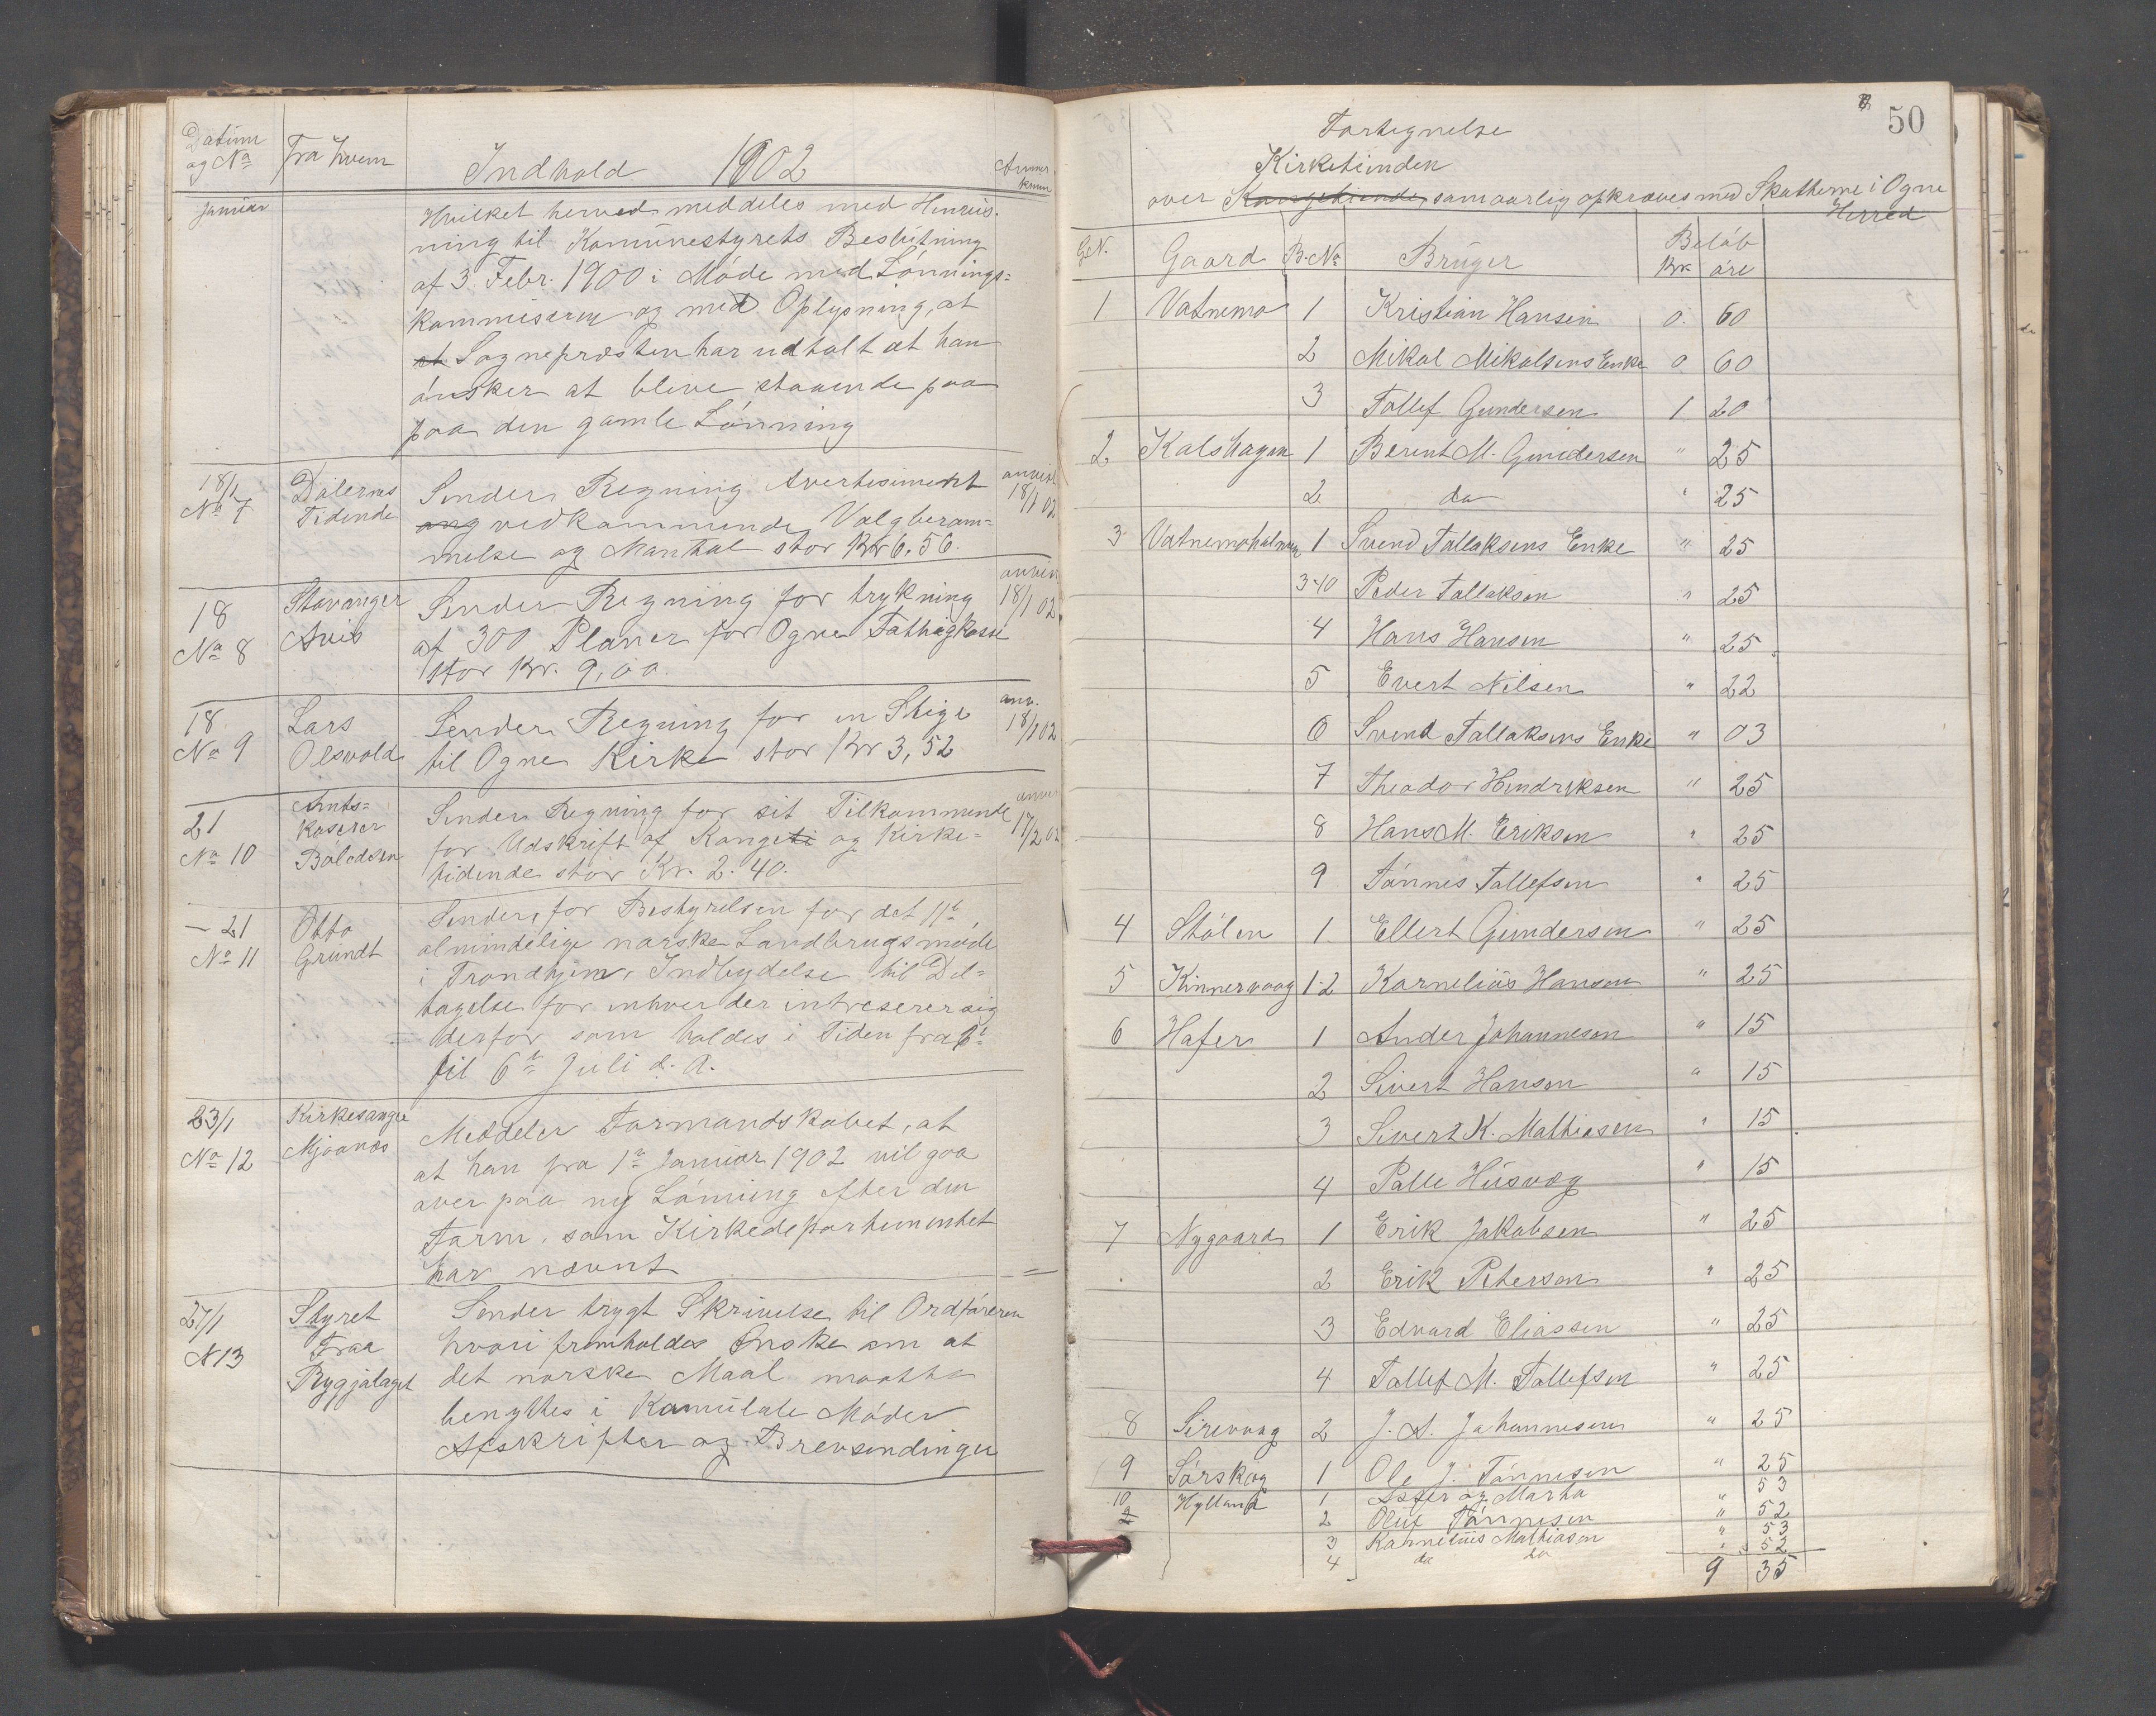 Datum
og No
Fra hvem
Indhold 1902
Anmerk
Januar
Hvilket herved meddeles med Henvis-
ning til Komunestyrets Beslutning
af 3 Febr. 1900 i Møde med Lønnings-
kommiseren og med Oplysning, at
at Sognepræsten har udtalt at han
ønsker at blive staaende paa
paa den gamle Lønning
18/1
No 7
Dalernes
Tidende
Sender Regning Avertisement
ang vedkommende Valgberam-
melse og Mantal stor Kr 6.56.
anvist
18/1 02
18
No 8
Stavanger
Avis
Sender Regning for trykning
af 300 Planer for Ogne Fattigkasse
stor Kr. 9,00.
anvist
18/1 02
18
No 9
Lars
Olsvold
Sender Regning for en Stige
til Ogne Kirke stor Kr 3,52
anv.
18/1 02
21
No 10
Amts-
kaserer
Sender Regning for sit Tilkommende
for Udskrift af Kongeti og Kirke-
tidende stor Kr. 2.40.
17/2 02
- 21
No 11
Otto
Grundt
Sender, for Bestyrelsen for det 11te
almindelige norske Landbrugsmøde
i Trondhjem, Indbydelse til Del-
tagelse for enhver der intreserer sig
derfor som holdes i Tiden fra
til 6te Juli d. A.
23/1
No 12
Kirkesanger
Mjaanes
Meddeler Formandskabet, at
at han fra 1te Januar 1902 vil gaa
over paa ny Lønning efter den
Form, som Kirkedepartementet
har nævnt
27/1
N 13
Styret
Fraa
Rygjalaget
Sender trygt Skrivelse til Ordføreren
hvori fremholdes Ønske om at
det norske Maal maatte
benyttes i Komunale Møder
Afskrifter og Brevsendinger
50
Fortegnelse
Kirketienden
over Kongetiende, som aarlig opkræves med Skatterne i Ogne
Herred
G.N. Gaard B.No Bruger Beløb
Kr. øre
1 Vatnemo 1 Kristian Hansen 0. 60
2 Mikal Mikalsens Enke 0 60
3 Tollef Gundersen 1 20
2 Kalshagen 1 Berent M. Gundersen " 25
2 do " 25
3 Vatnemoholmen 1 Svend Tallaksens Enke " 25
3-10 Peder Tallaksen " 25
4 Hans Hansen " 25
5 Evert Nilsen " 22
6 Svend Tallaksens Enke " 03
7 Theodor Hendriksen " 25
8 Hans M. Eriksen " 25
9 Tønnes Tollefsen " 25
4 Stølen 1 Ellert Gundersen " 25
5 Kinnervaag 1-2 Kornelius Hansen " 25
6 Hafer 1 Ander Johannesen " 15
2 Sivert Hansen " 15
3 Sivert K. Mathiasen " 15
4 Palle Husvæg " 15
7 Nygaard 1 Erik Jakobsen " 25
2 Erik Petersen " 25
3 Edvard Eliassen " 25
4 Tollef M. Tollefsen " 25
8 Sirevaag 2 J. A. Johannesen " 25
9 Sørskog 1 Ole J. Tønnesen " 25
10 Hylland 1 og Marta " 53
2 2 Oluf Tønnesen " 52
3 Kornelius Mathiasen " 53
4 do do " 52
9 35